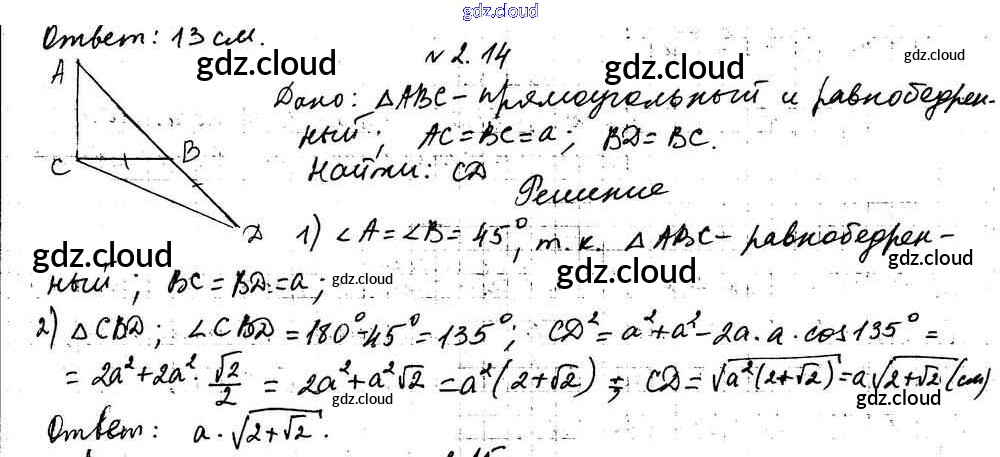 gdz.cloud
gdz.cloud
Ответ: 13 см.
№ 2.14
gdz.cloud
gdz.cloud
A
Дано: △ABC - прямоугольный и равнобедрен-
ный; AC = BC = a; BD = BC.
C
B
Найти: CD
Решение
D
1) ∠A = ∠B = 45°, т.к. △ABC - равнобедрен-
gdz.cloud
gdz.cloud
gdz.cloud
ный; BC = BD = a;
gdz.cloud
2) △CBD; ∠CBD = 180° - 45° = 135°; CD² = a² + a² - 2a·a·cos135° =
= 2a² + 2a² · √2/2 = 2a² + a²√2 = a²(2+√2); CD = √(a²(2+√2)) = a√(2+√2) (см)
gdz.cloud
gdz.cloud
Ответ: a·√(2+√2).